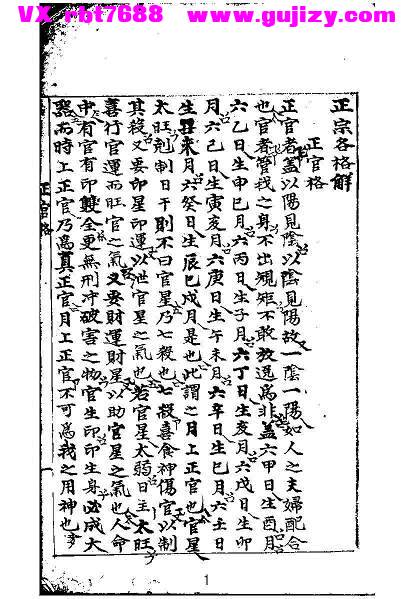 VX rbt7688 www.gujizy.com
正宗各格解
正官格
正官者盖以陽見陰以陰見陽故一陰一陽如人之夫婦配合
也官者管我之身不出規矩不敢放逸為非盖六甲日生酉月
六乙日生申巳月六丙日生子月六丁日生亥月六戊日生卯
月六己日生寅亥月六庚日生午未月六辛日生巳月六壬日
生丑未月六癸日生辰巳戌月是也此謂之月上正官也官星
太旺剋制日干則不曰官星乃七殺也七殺喜食神傷官以制
其殺又要印星印運以泄官星之氣也若官星太弱日主太旺
喜行官運而旺官之氣又要財運財星以助官星之氣也人命
中有官有印雙全更無刑冲破害之物官生印印生身必成大
器而時上正官乃為真正官月上正官不可為我之用神也
正官格
一
1